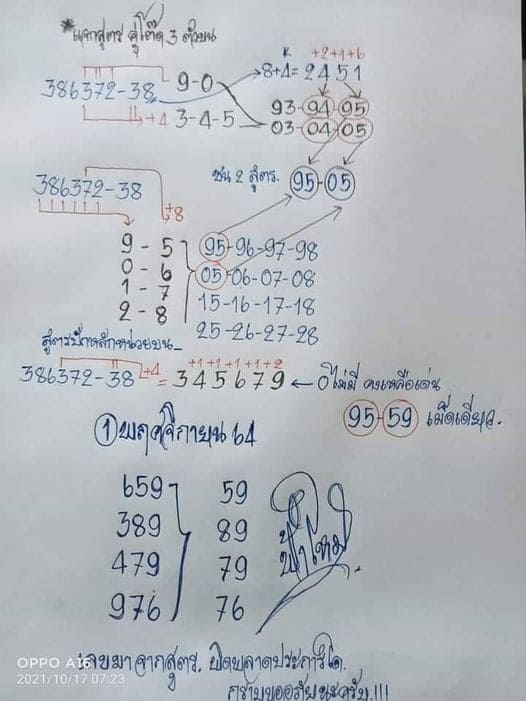 *แจกสูตร คู่โต๊ด 3 ตัวบน
K +2+1+6
8+4= 2451
386372-38 9-0
+4 3-4-5
93-94-95
03-04-05
ชน 2 สูตร. 95-05
386372-38
+8
9 - 5 95-96-97-98
0 - 6 05-06-07-08
1 - 7 15-16-17-18
2 - 8 25-26-27-28
สูตรปักหลักหน่วยบน
+1+1+1+1+2
386372-38 +4 = 345679 ← 0ไม่มี คงเหลือเด่น
95-59 เม็ดเดียว.
① พฤศจิกายน 64
659 59
389 89
479 79
976 76
ฟ้าใหม่
เลขมาจากสูตร. ผิดพลาดประการใด.
กราบขออภัยนะครับ.!!!
OPPO A16
2021/10/17 07:23